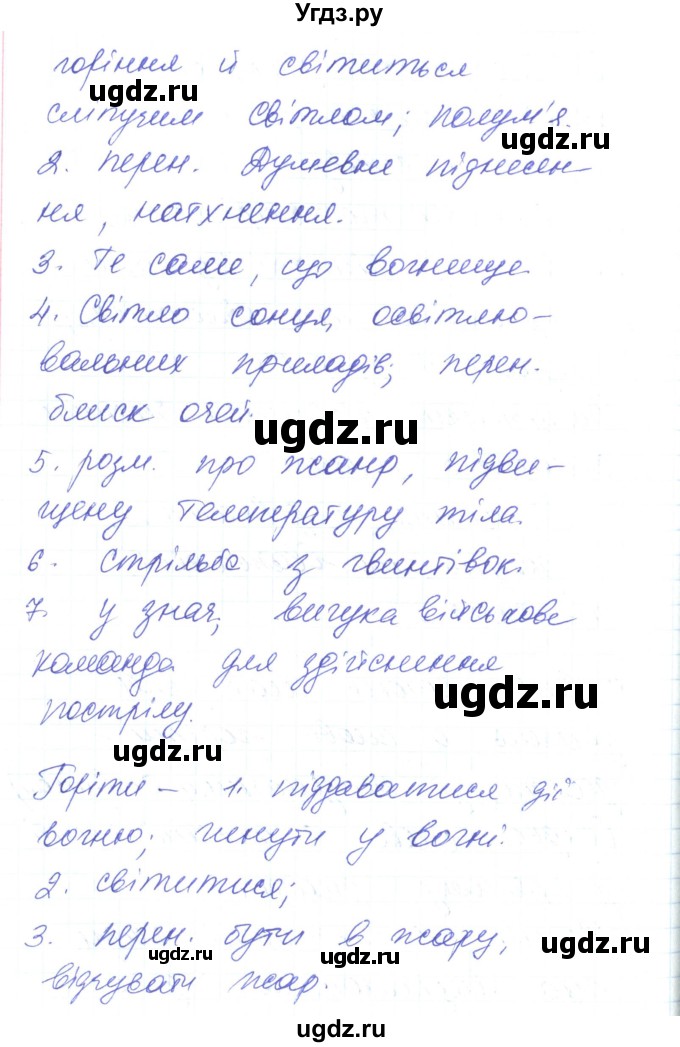 Угдз.ру
горіння й світиться
ugdz.ru
сліпучим світлом; полум'я.
ugdz.ru
2. перен. Душевне піднесен-
ня, натхнення.
ugdz.ru
3. Те саме, що вогнище
4. Світло сонця, освітлю-
вальних приладів; перен.
блиск очей.
ugdz.ru
5. розм. про жанр, підви-
щену температуру тіла.
6. Стрільба з гвинтівок.
7. у знач, вигука військове
команда для здійснення
пострілу.
ugdz.ru
ugdz.ru
Горіти – 1. піддаватися дії
вогню; гинути у вогні.
2. світитися;
3. перен. бути в жару,
ugdz.ru
відчувати жар.
ugdz.ru
ugdz.ru
ugdz.ru